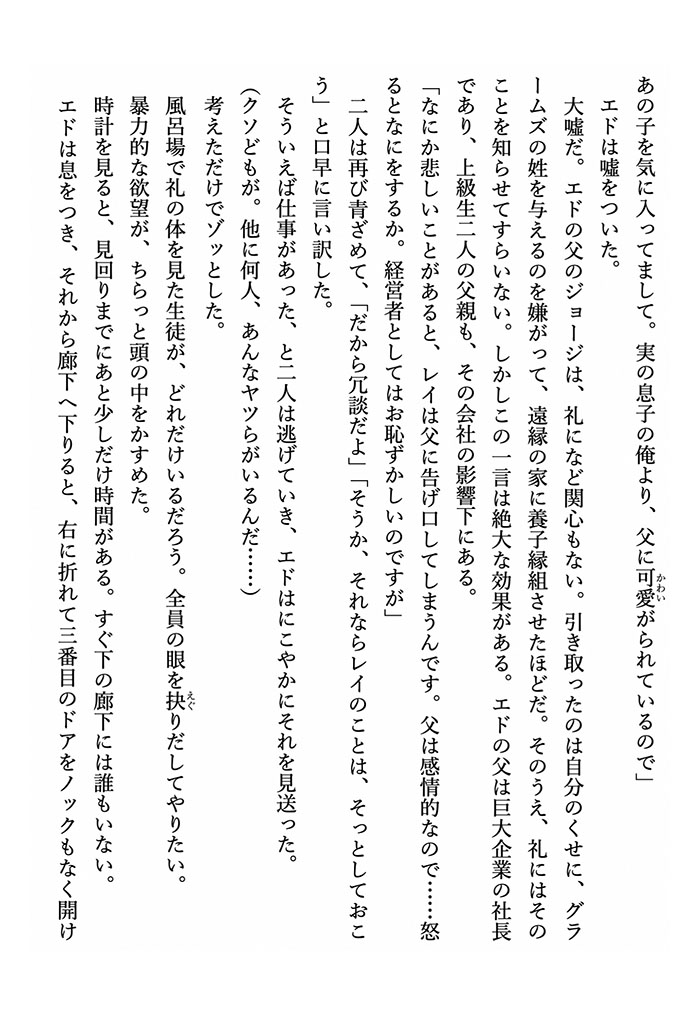 あの子を気に入ってまして。実の息子の俺より、父に可愛がられているので」
エドは嘘をついた。
大嘘だ。エドの父のジョージは、礼になど関心もない。引き取ったのは自分のくせに、グラ
ームズの姓を与えるのを嫌がって、遠縁の家に養子縁組させたほどだ。そのうえ、礼にはその
ことを知らせてすらいない。しかしこの一言は絶大な効果がある。エドの父は巨大企業の社長
であり、上級生二人の父親も、その会社の影響下にある。
「なにか悲しいことがあると、レイは父に告げ口してしまうんです。父は感情的なので……怒
るとなにをするか。経営者としてはお恥ずかしいのですが」
二人は再び青ざめて、「だから冗談だよ」「そうか、それならレイのことは、そっとしておこ
う」と口早に言い訳した。
そういえば仕事があった、と二人は逃げていき、エドはにこやかにそれを見送った。
(クソどもが。他に何人、あんなヤツらがいるんだ……)
考えただけでゾッとした。
風呂場で礼の体を見た生徒が、どれだけいるだろう。全員の眼を抉りだしてやりたい。
暴力的な欲望が、ちらっと頭の中をかすめた。
時計を見ると、見回りまでにあと少しだけ時間がある。すぐ下の廊下には誰もいない。
エドは息をつき、それから廊下へ下りると、右に折れて三番目のドアをノックもなく開け